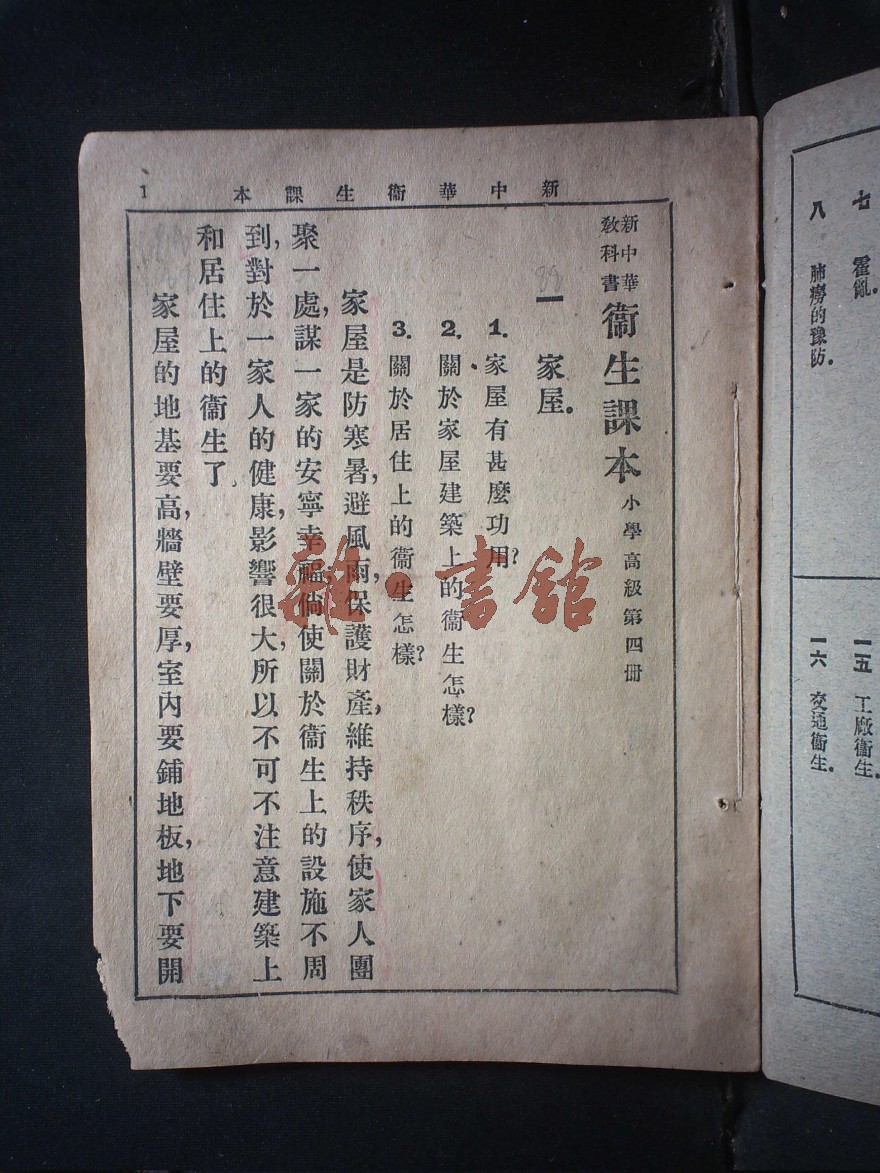 新中華衞生課本 1
新中華
教科書
衞生課本 小學高級第四册
一 家屋.
1. 家屋有甚麽功用?
2. 關於家屋建築上的衞生怎樣?
3. 關於居住上的衞生怎樣?
家屋是防寒暑,避風雨,保護財產,維持秩序,使家人團
聚一處,謀一家的安寧幸福,倘使關於衞生上的設施不周
到,對於一家人的健康,影響很大,所以不可不注意建築上
和居住上的衞生了.
家屋的地基要高,牆壁要厚,室內要鋪地板,地下要開
七 霍亂.
八 肺癆的豫防.
一五 工廠衞生.
一六 交通衞生.
雜·書館